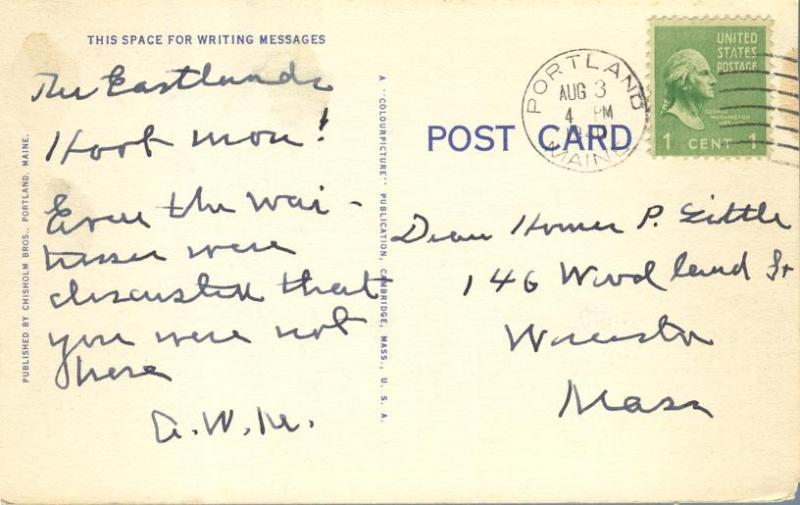 THIS SPACE FOR WRITING MESSAGES
The Eastlands
Hoot mon!
Even the wai-
tresses were
disgusted that
you were not
here
A.W.M.
PUBLISHED BY CHISHOLM BROS., PORTLAND, MAINE.
A "COLOURPICTURE" PUBLICATION, CAMBRIDGE, MASS., U. S. A.
POST CARD
PORTLAND
AUG 3
4 PM
MAINE
UNITED
STATES
POSTAGE
GEORGE
WASHINGTON
1 CENT 1
Dean Homer P. Little
146 Woodland St
Worcester
Mass